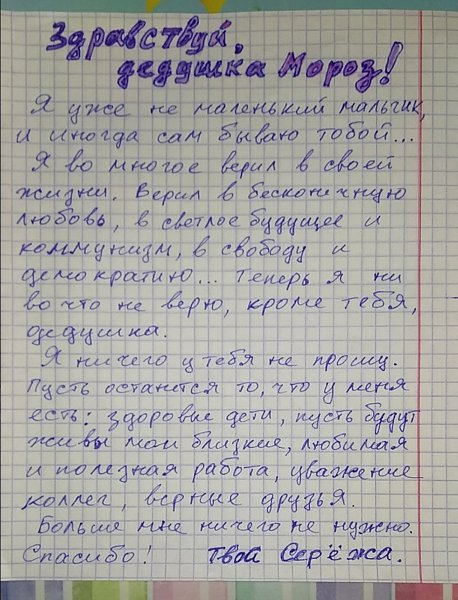 Здравствуй,
дедушка Мороз!
Я уже не маленький мальчик,
и иногда сам бываю тобой...
Я во многое верил в своей
жизни. Верил в бесконечную
любовь, в светлое будущее и
коммунизм, в свободу и
демократию... Теперь я ни
во что не верю, кроме тебя,
дедушка.
Я ничего у тебя не прошу.
Пусть останется то, что у меня
есть: здоровые дети, пусть будут
живы мои близкие, любимая
и полезная работа, уважение
коллег, верные друзья.
Больше мне ничего не нужно.
Спасибо! Твой Серёжа.